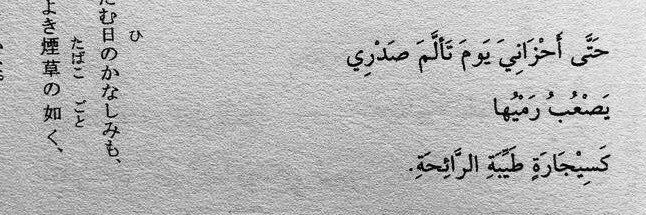 حَتَّى أَحْزَانِيَ يَومَ تَأَلَّمَ صَدْرِي
يَصْعُبُ رَمْيُها
كَسِيْجَارَةٍ طَيِّبَةِ الرَّائِحَةِ.
む日のかなしみも、
よき煙草の如く、